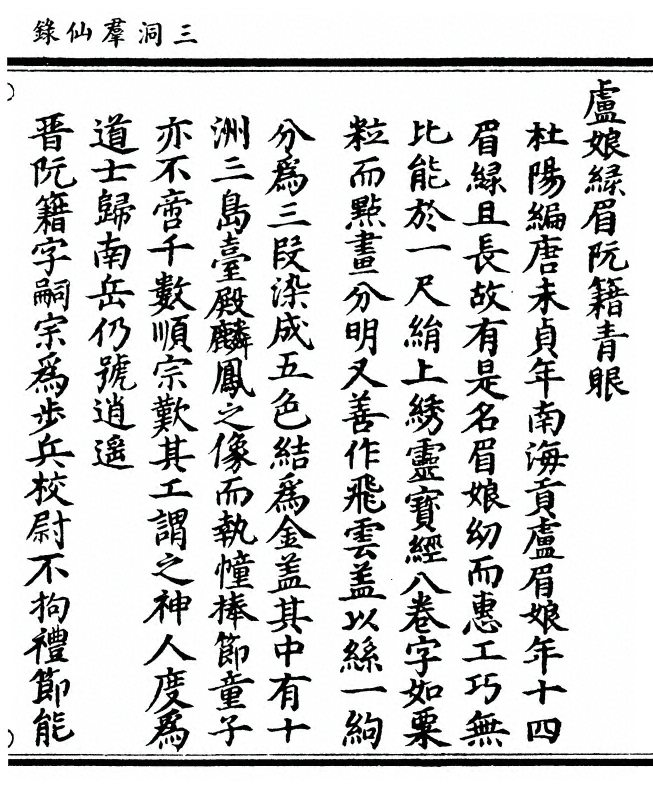 三洞羣仙錄
盧娘緑眉阮籍青眼
杜陽編唐末貞年南海貢盧眉娘年十四
眉緑且長故有是名眉娘幼而惠工巧無
比能於一尺絹上綉靈寶經八卷字如粟
粒而點畫分明又善作飛雲盖以絲一絇
分爲三段染成五色結爲金盖其中有十
洲三島臺殿麟鳳之像而執幢捧節童子
亦不啻千數順宗歎其工謂之神人度爲
道士歸南岳仍號逍遥
晋阮籍字嗣宗爲步兵校尉不拘禮節能